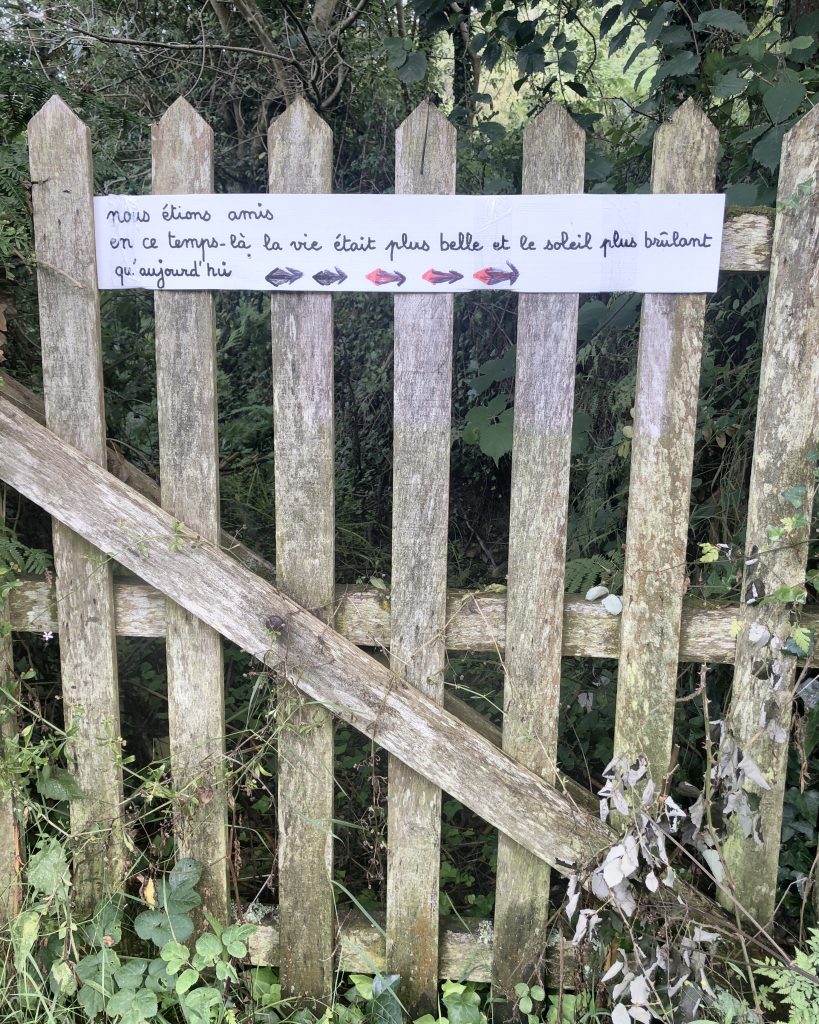 nous étions amis
en ce temps-là la vie était plus belle et le soleil plus brûlant
qu'aujourd'hui